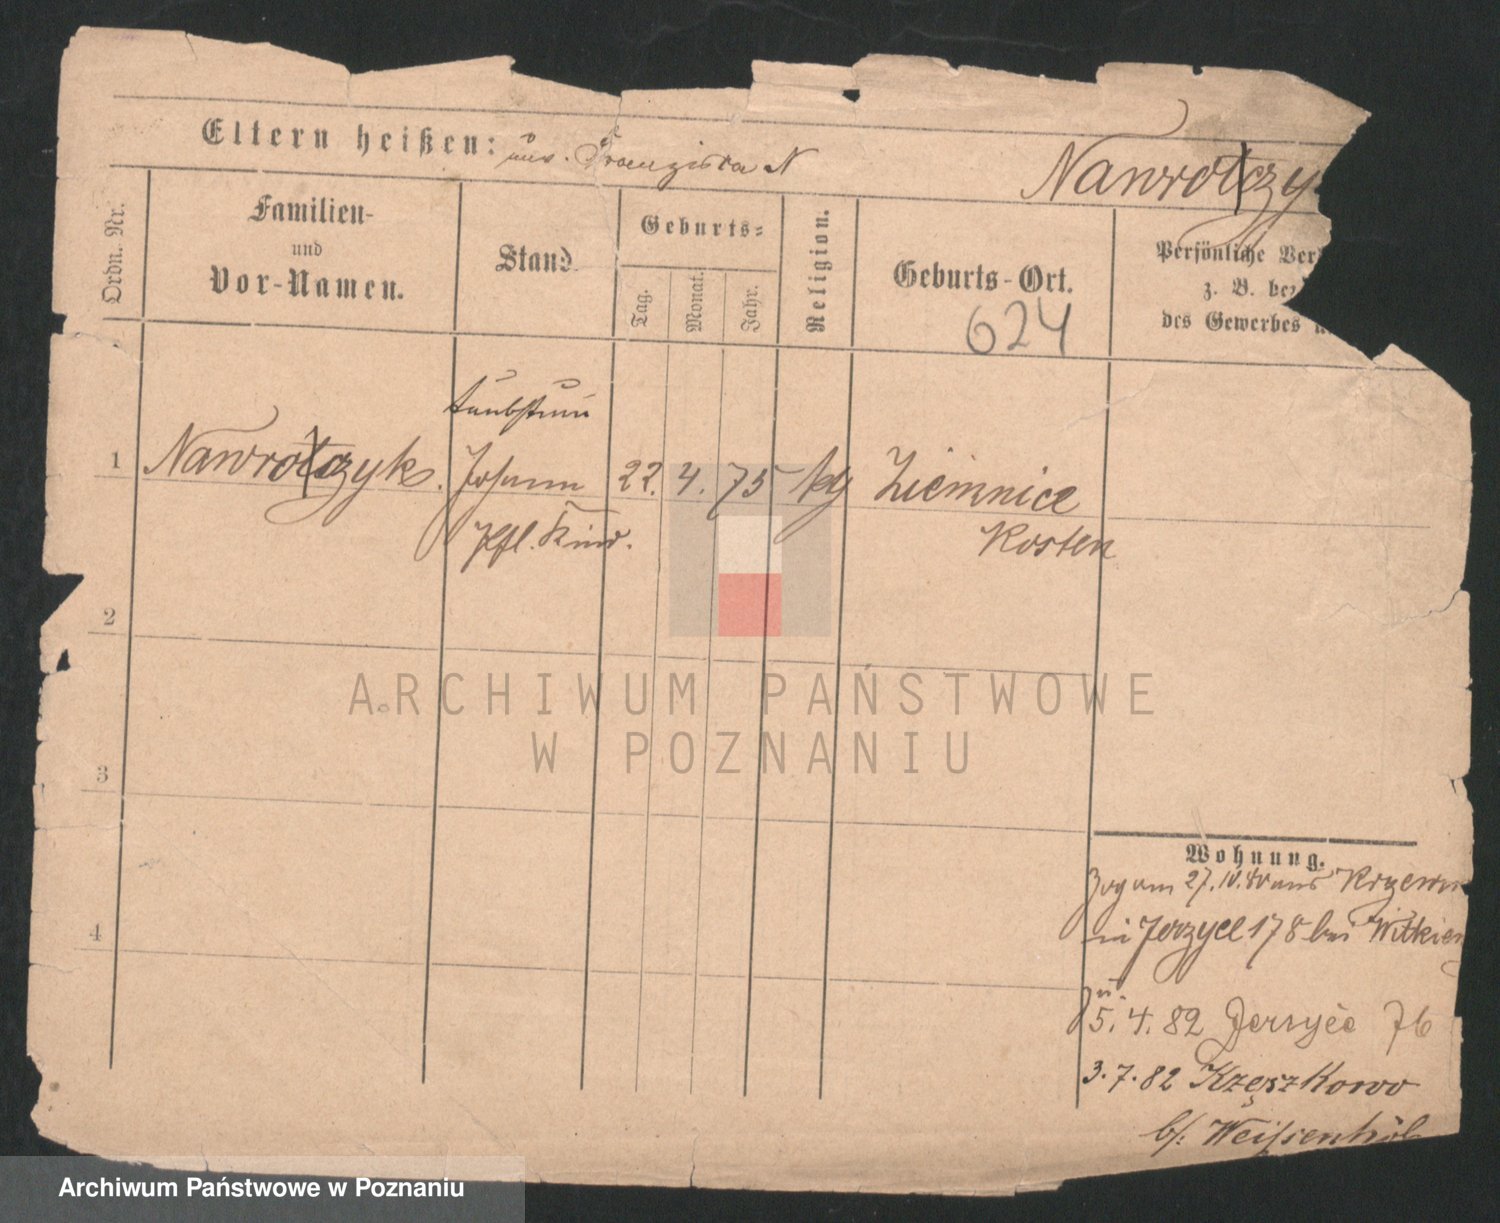 Eltern heißen: unv. Franziska N
Nawrotczy
Ordn. Nr.
Familien-
und
Vor-Namen.
Stand.
Geburts-
Tag.
Monat.
Jahr.
Religion.
Geburts-Ort.
624
Persönliche Ver
z. B. be
des Gewerbes
taubstum
1 Nawrotczyk. Johann 22. 4. 75 kg Ziemnice
Pfl. Kind. Kosten
2
3
4
Wohnung.
Zog am 27. IV. 80 aus
in Jerzyce 178 bei Witkie
zu
5. 4. 82 Jersyce 76
3. 7. 82 Krzeszkowo
b/: Weissenhöh
ARCHIWUM PAŃSTWOWE
W POZNANIU
Archiwum Państwowe w Poznaniu